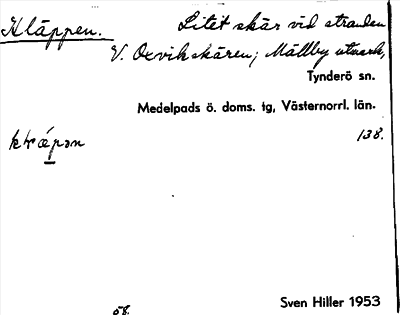 Kläppen.
Litet skär vid stranden
V. Oxvikskären; Mällby utmark,
Tynderö sn.
Medelpads ö. doms. tg, Västernorrl. län.
138.
Sven Hiller 1953
58.